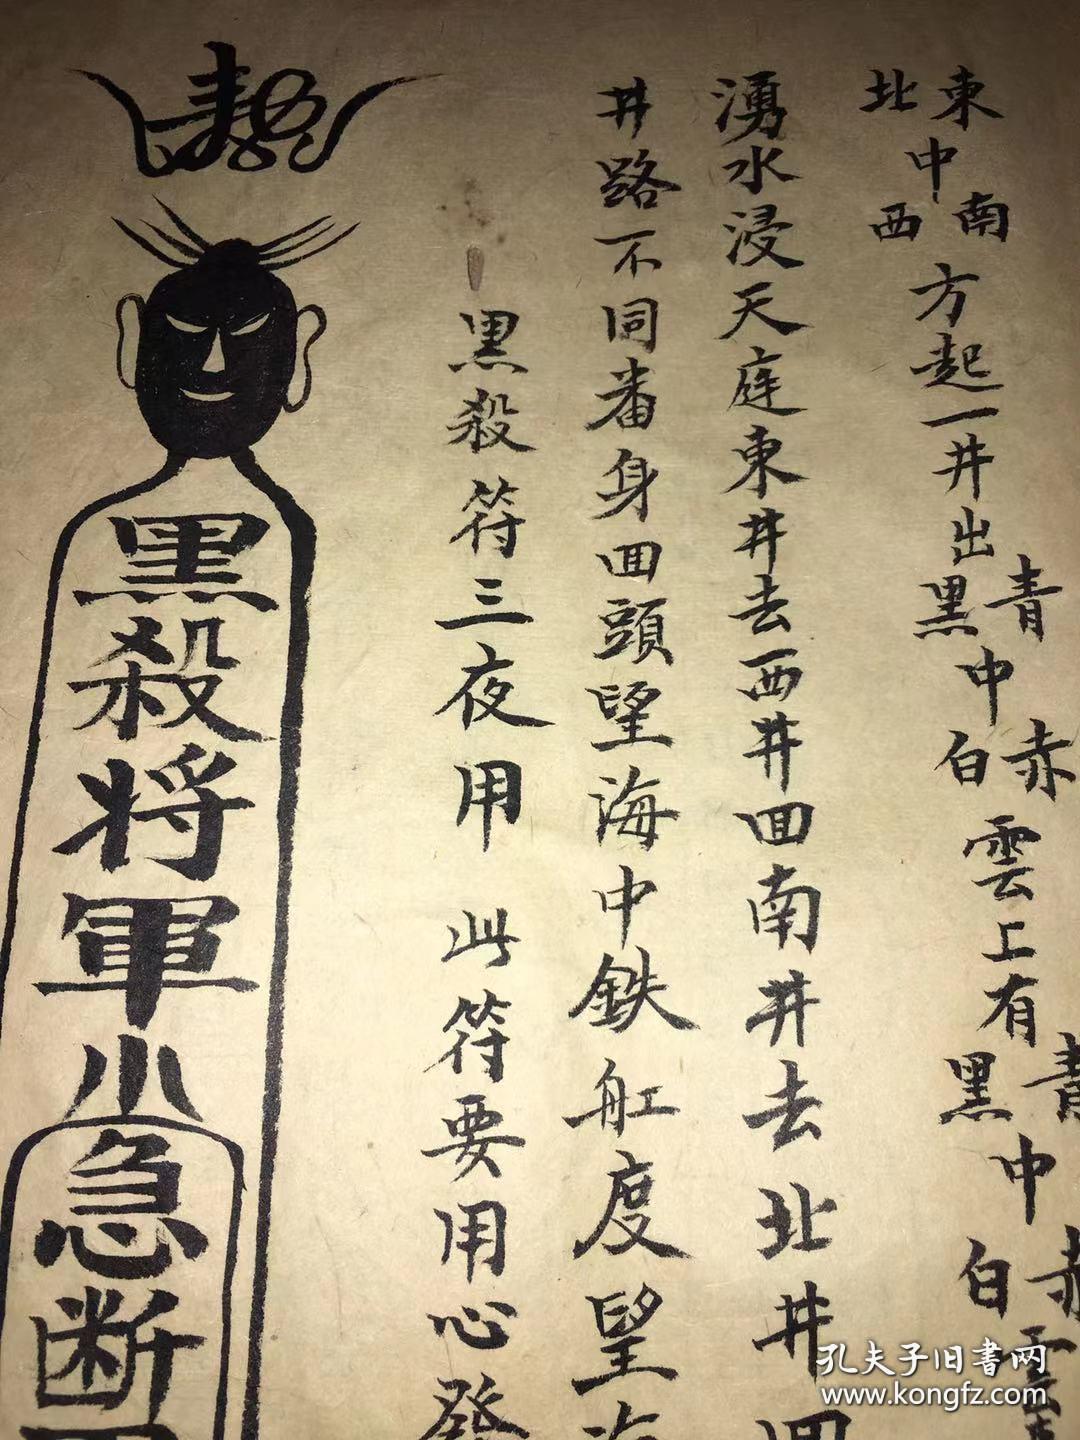 東
北
中
南
西
方起一井出
青
黑
中
赤
白
雲上有
青
黑
中
赤
白
雲
湧水浸天庭東井去西井回南井去北井回
井路不同番身回頭望海中鉄舡度望海
黑殺符三夜用 此符要用心發
敕
黑殺将軍小急断
孔夫子旧書网
www.kongfz.com